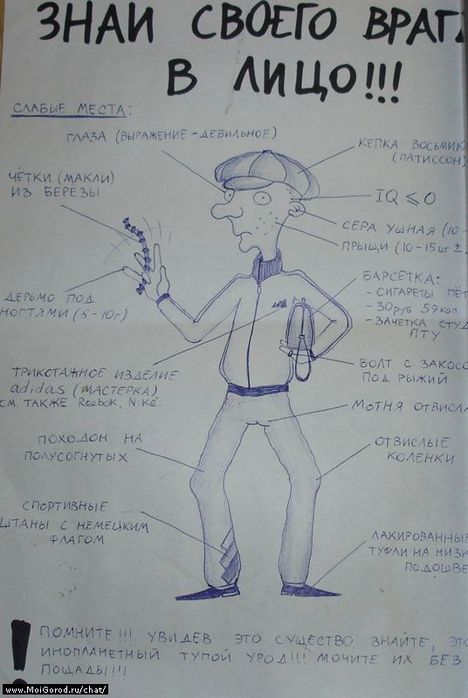 ЗНАЙ СВОЕГО ВРАГА
В ЛИЦО!!!
СЛАБЫЕ МЕСТА:
ГЛАЗА (ВЫРАЖЕНИЕ - ДЕБИЛЬНОЕ)
КЕПКА ВОСЬМИК
(ПАТИССОН)
ЧЁТКИ (МАКЛИ)
ИЗ БЕРЕЗЫ
IQ ⩽ 0
СЕРА УШНАЯ (10-
ПРЫЩИ (10-15 шт ±
ДЕРЬМО ПОД
НОГТЯМИ (5-10г)
БАРСЕТКА:
- СИГАРЕТЫ ПЁТ
- 30 РУБ 59 КОП.
- ЗАЧЕТКА СТУД
ПТУ
БОЛТ С ЗАКОСО
ПОД РЫЖИЙ
ТРИКОТАЖНОЕ ИЗДЕЛИЕ
adidas (МАСТЕРКА)
СМ. ТАКЖЕ Reebok, N.Ke.
МОТНЯ ОТВИСЛА
ПОХОДОН НА
ПОЛУСОГНУТЫХ
ОТВИСЛЫЕ
КОЛЕНКИ
СПОРТИВНЫЕ
ШТАНЫ С НЕМЕЦКИМ
ФЛАГОМ
ЛАКИРОВАННЫ
ТУФЛИ НА НИЗК
ПОДОШВЕ
! ПОМНИТЕ!!! УВИДЕВ ЭТО СУЩЕСТВО ЗНАЙТЕ, ЭТО
ИНОПЛАНЕТНЫЙ ТУПОЙ УРОД!!! МОЧИТЕ ИХ БЕЗ
ПОЩАДЫ!!!
www.MoiGorod.ru/chat/